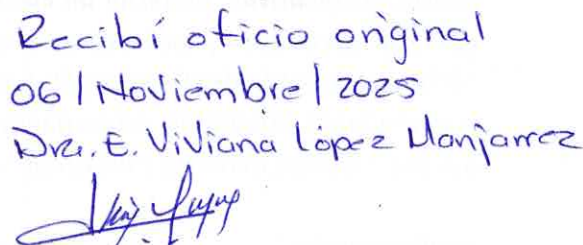 Recibí oficio original
06 / Noviembre / 2025
Dra. E. Viviana López Manjarrez